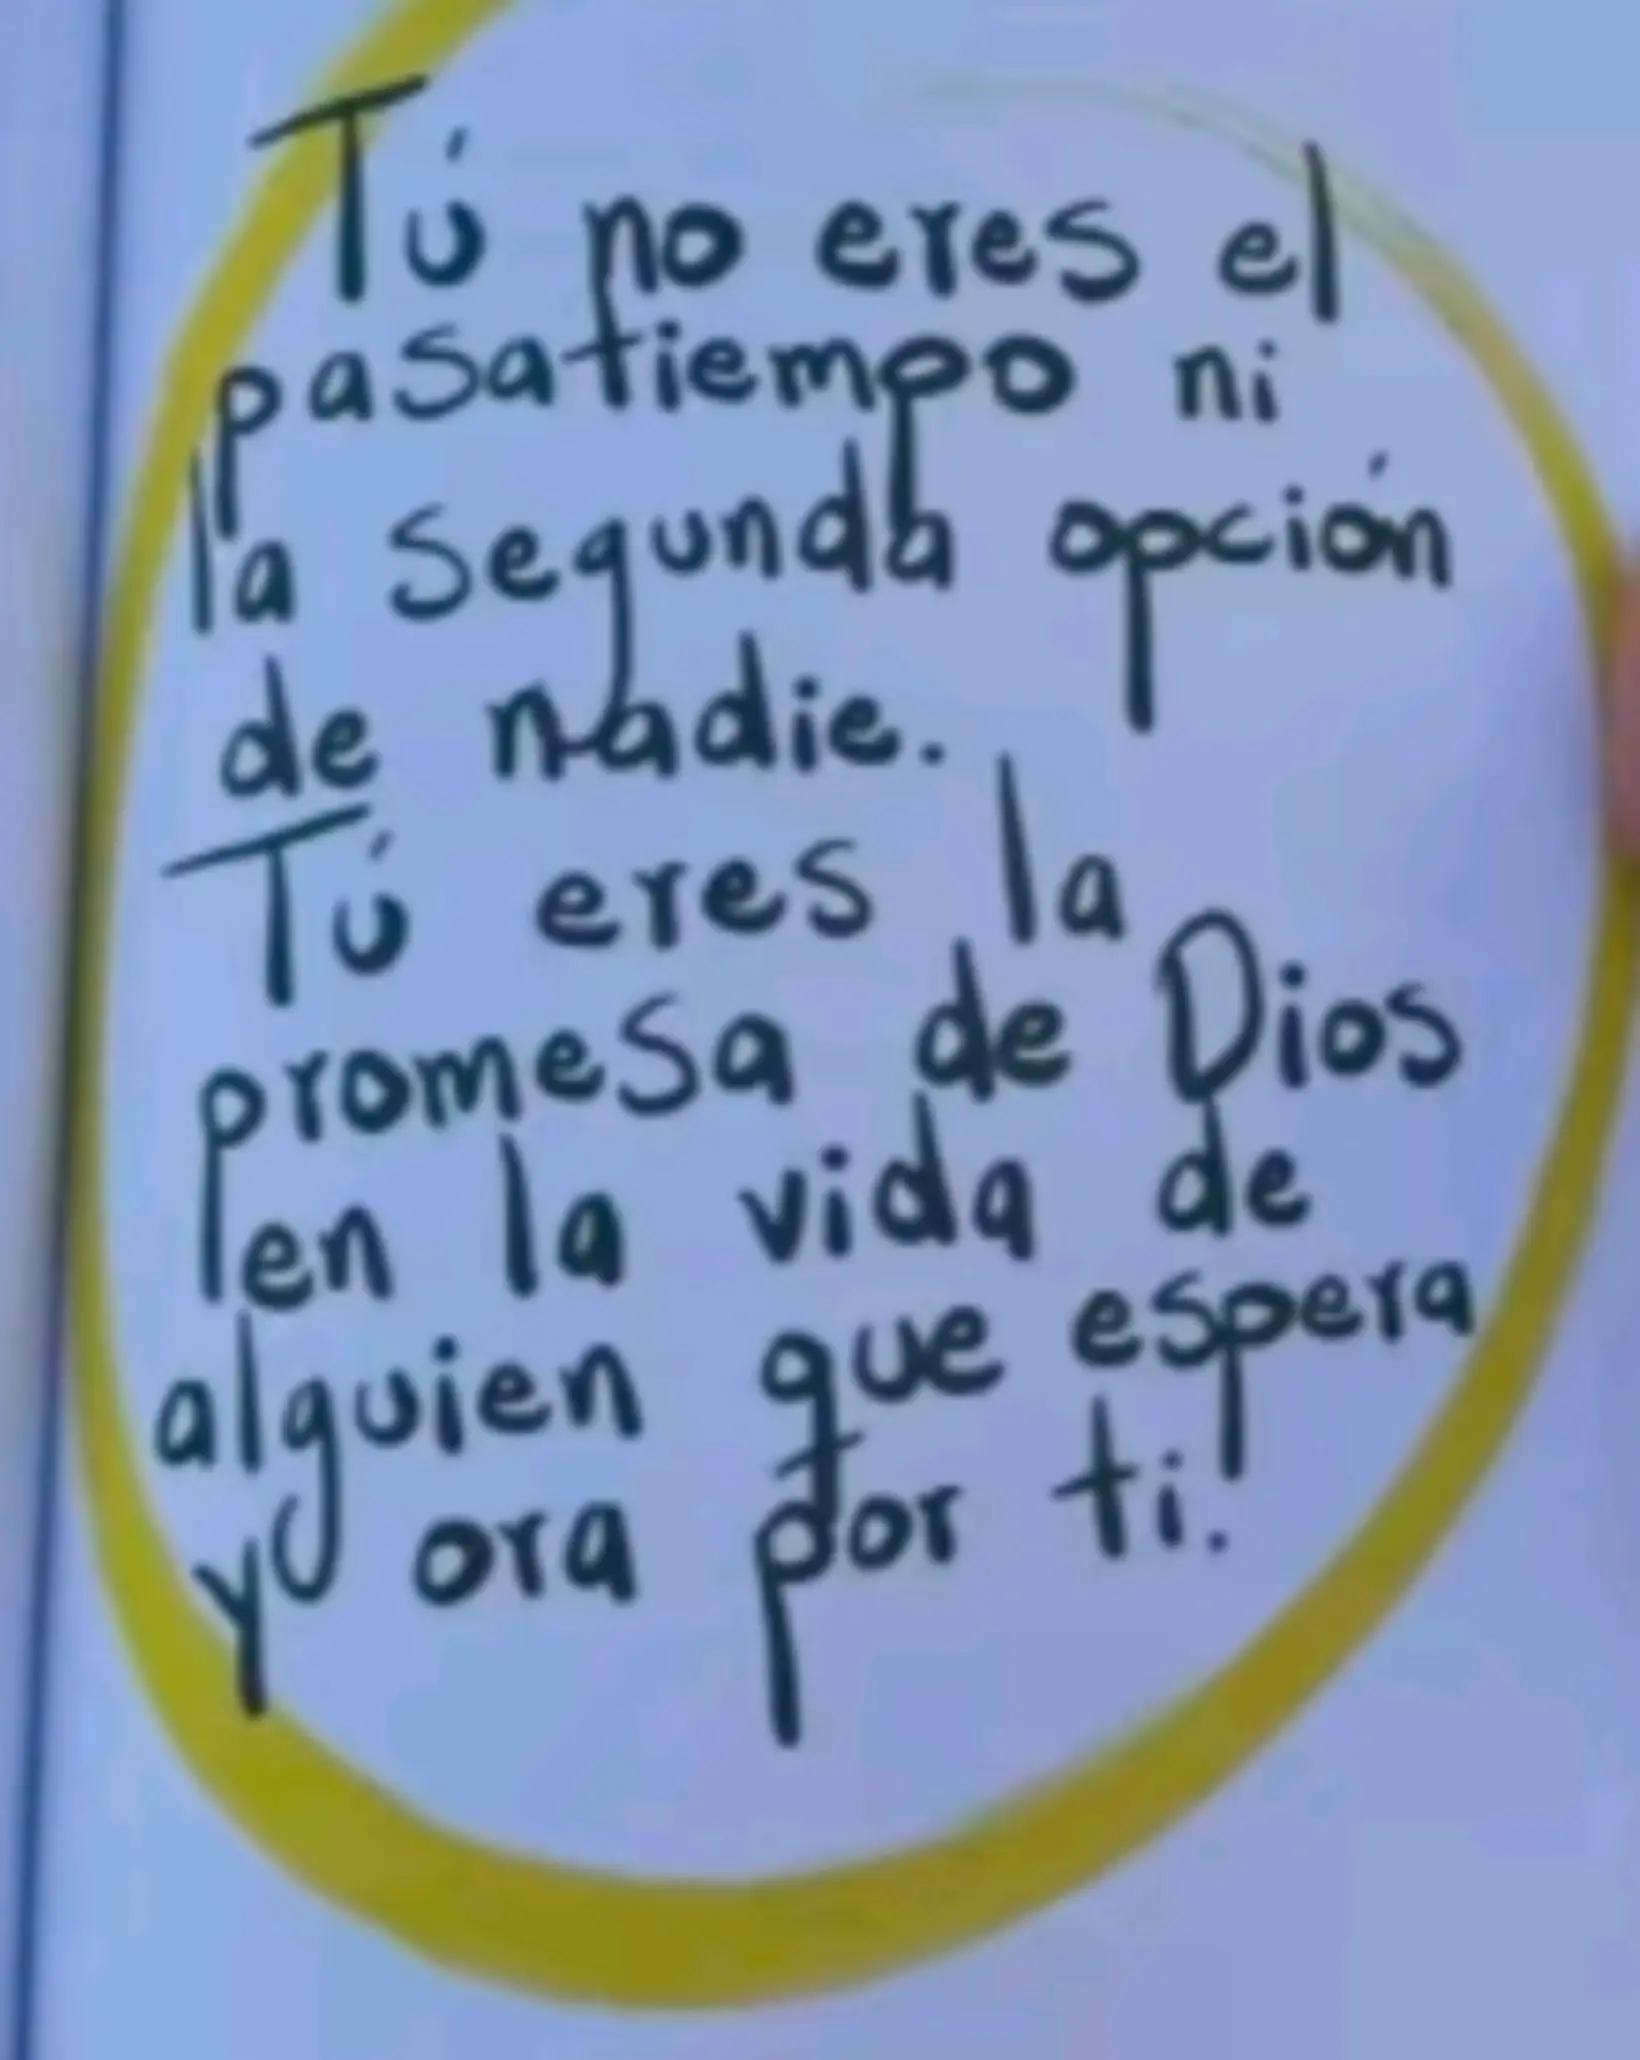 Tú no eres el
pasatiempo ni
la segunda opción
de nadie.
Tú eres la
promesa de Dios
en la vida de
alguien que espera
y ora por ti.